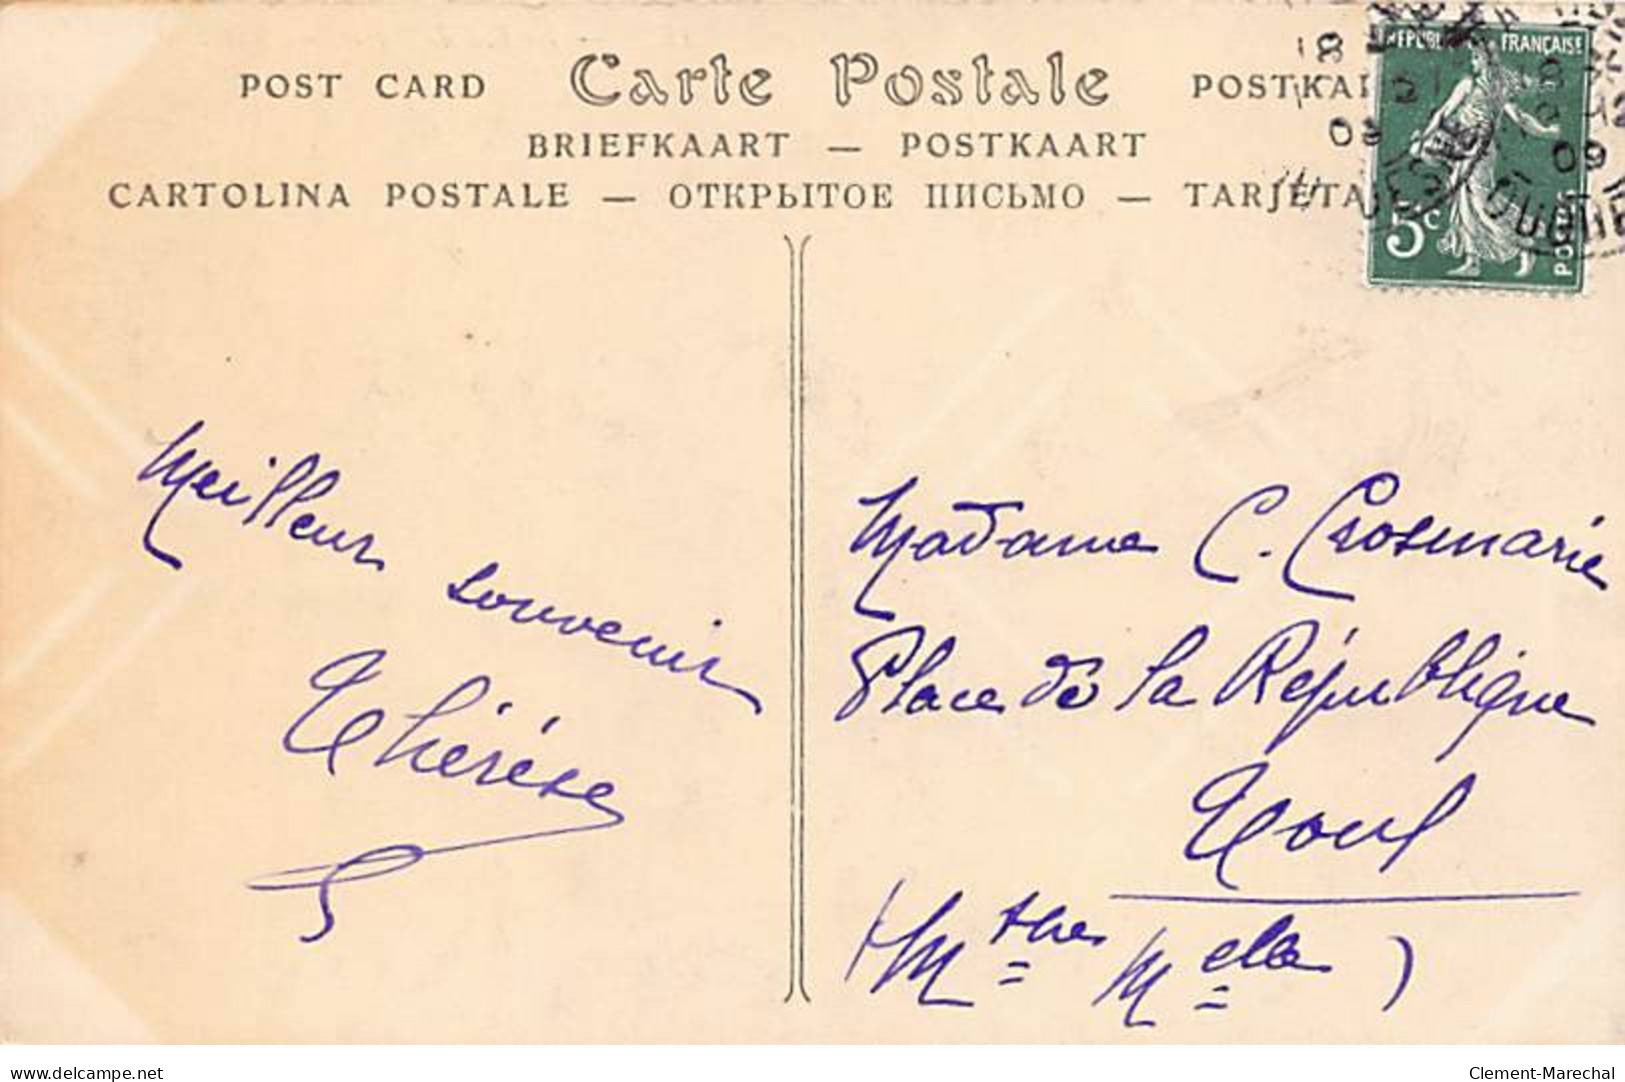 POST CARD Carte Postale POSTKA
BRIEFKAART — POSTKAART
CARTOLINA POSTALE — ОТКРЫТОЕ ПИСЬМО — TARJETA
RÉPUBLIQUE FRANÇAISE
5c
POSTES
18
12
09
Meilleur souvenir
Thérèse
Madame C. Crosmarie
Place de la République
Toul
(Mthe Melle)
delcampe.net
Clement-Marechal